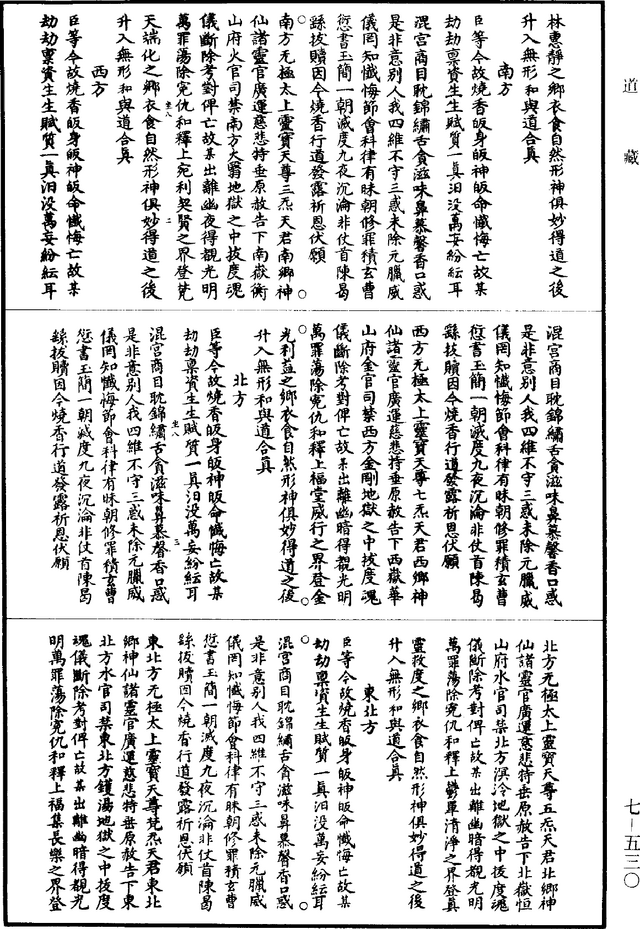 道藏
林惠靜之鄉衣食自然形神俱妙得道之後
升入無形和與道合眞
南方
臣等今故燒香皈身皈神皈命懺悔亡故某
劫劫稟資生生賦質一眞汨没萬妄紛紜耳
混宮商目耽錦繡舌貪滋味鼻慕馨香口惑
是非意别人我四維不守三惑未除元臘威
儀罔知懺悔節會科律有昧朝修罪積玄曹
愆書玉簡一朝滅度九夜沉淪非仗首陳曷
繇拔贖因今燒香行道發露祈恩伏願
南方無極太上靈寶天尊三炁天君南鄉神
仙諸靈官廣運慈悲特垂原赦告下南嶽衡
山府火官司禁南方大羂地獄之中拔度魂
儀斷除考對俾亡故某出離幽夜得覩光明
萬罪蕩除寃仇和釋上宛利契賢之界登梵
天端化之鄉衣食自然形神俱妙得道之後
升入無形和與道合眞
西方
臣等今故燒香皈身皈神皈命懺悔亡故某
劫劫稟資生生賦質一眞汨没萬妄紛紜耳
混宮商目耽錦繡舌貪滋味鼻慕馨香口惑
是非意别人我四維不守三惑未除元臘威
儀罔知懺悔節會科律有昧朝修罪積玄曹
愆書玉簡一朝滅度九夜沉淪非仗首陳曷
繇拔贖因今燒香行道發露祈恩伏願
西方无極太上靈寶天尊七炁天君西鄉神
仙諸靈官廣運慈悲特垂原赦告下西嶽華
山府金官司禁西方金剛地獄之中拔度魂
儀斷除考對俾亡故某出離幽暗得覩光明
萬罪蕩除寃仇和釋上福堂威行之界登金
光利益之鄉衣食自然形神俱妙得道之後
升入無形和與道合眞
北方
臣等今故燒香皈身皈神皈命懺悔亡故某
劫劫稟資生生賦質一眞汨没萬妄紛紜耳
混宮商目耽錦繡舌貪滋味鼻慕馨香口惑
是非意别人我四維不守三惑未除元臘威
儀罔知懺悔節會科律有昧朝修罪積玄曹
愆書玉簡一朝滅度九夜沉淪非仗首陳曷
繇拔贖因今燒香行道發露祈恩伏願
北方无極太上靈寶天尊五炁天君北鄉神
仙諸靈官廣運慈悲特垂原赦告下北嶽恒
山府水官司禁北方溟泠地獄之中拔度魂
儀斷除考對俾亡故某出離幽暗得覩光明
萬罪蕩除寃仇和釋上鬱單清淨之界登眞
靈救度之鄉衣食自然形神俱妙得道之後
升入無形和與道合眞
東北方
臣等今故燒香皈身皈神皈命懺悔亡故某
劫劫稟資生生賦質一眞汨没萬妄紛紜耳
混宮商目耽錦繡舌貪滋味鼻慕馨香口惑
是非意别人我四維不守三惑未除元臘威
儀罔知懺悔節會科律有昧朝修罪積玄曹
愆書玉簡一朝滅度九夜沉淪非仗首陳曷
繇拔贖因今燒香行道發露祈恩伏願
東北方无極太上靈寶天尊梵炁天君東北
鄉神仙諸靈官廣運慈悲特垂原赦告下東
北方水官司禁東北方鑊湯地獄之中拔度
魂儀斷除考對俾亡故某出離幽暗得覩光
明萬罪蕩除寃仇和釋上福集長樂之界登
七－五三〇